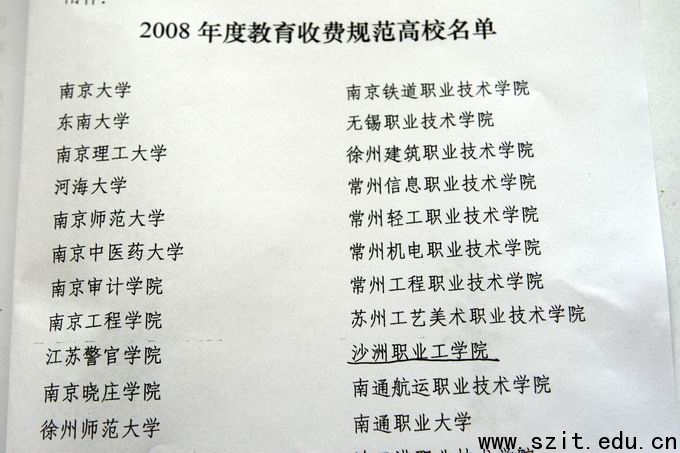 附件：
2008 年度教育收费规范高校名单
南京大学
东南大学
南京理工大学
河海大学
南京师范大学
南京中医药大学
南京审计学院
南京工程学院
江苏警官学院
南京晓庄学院
徐州师范大学
南京铁道职业技术学院
无锡职业技术学院
徐州建筑职业技术学院
常州信息职业技术学院
常州轻工职业技术学院
常州机电职业技术学院
常州工程职业技术学院
苏州工艺美术职业技术学院
沙洲职业工学院
南通航运职业技术学院
南通职业大学
www.szit.edu.cn